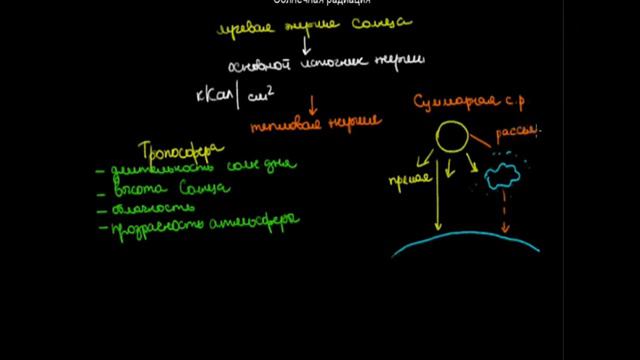 Солнечная радиация
лучевая энергия солнца
основной источник энергии
кКал/см²
тепловая энергия
Суммарная с.р
рассеян.
Тропосфера
- длительность солн дня
прямая
- высота Солнца
- облачность
- прозрачность атмосферы